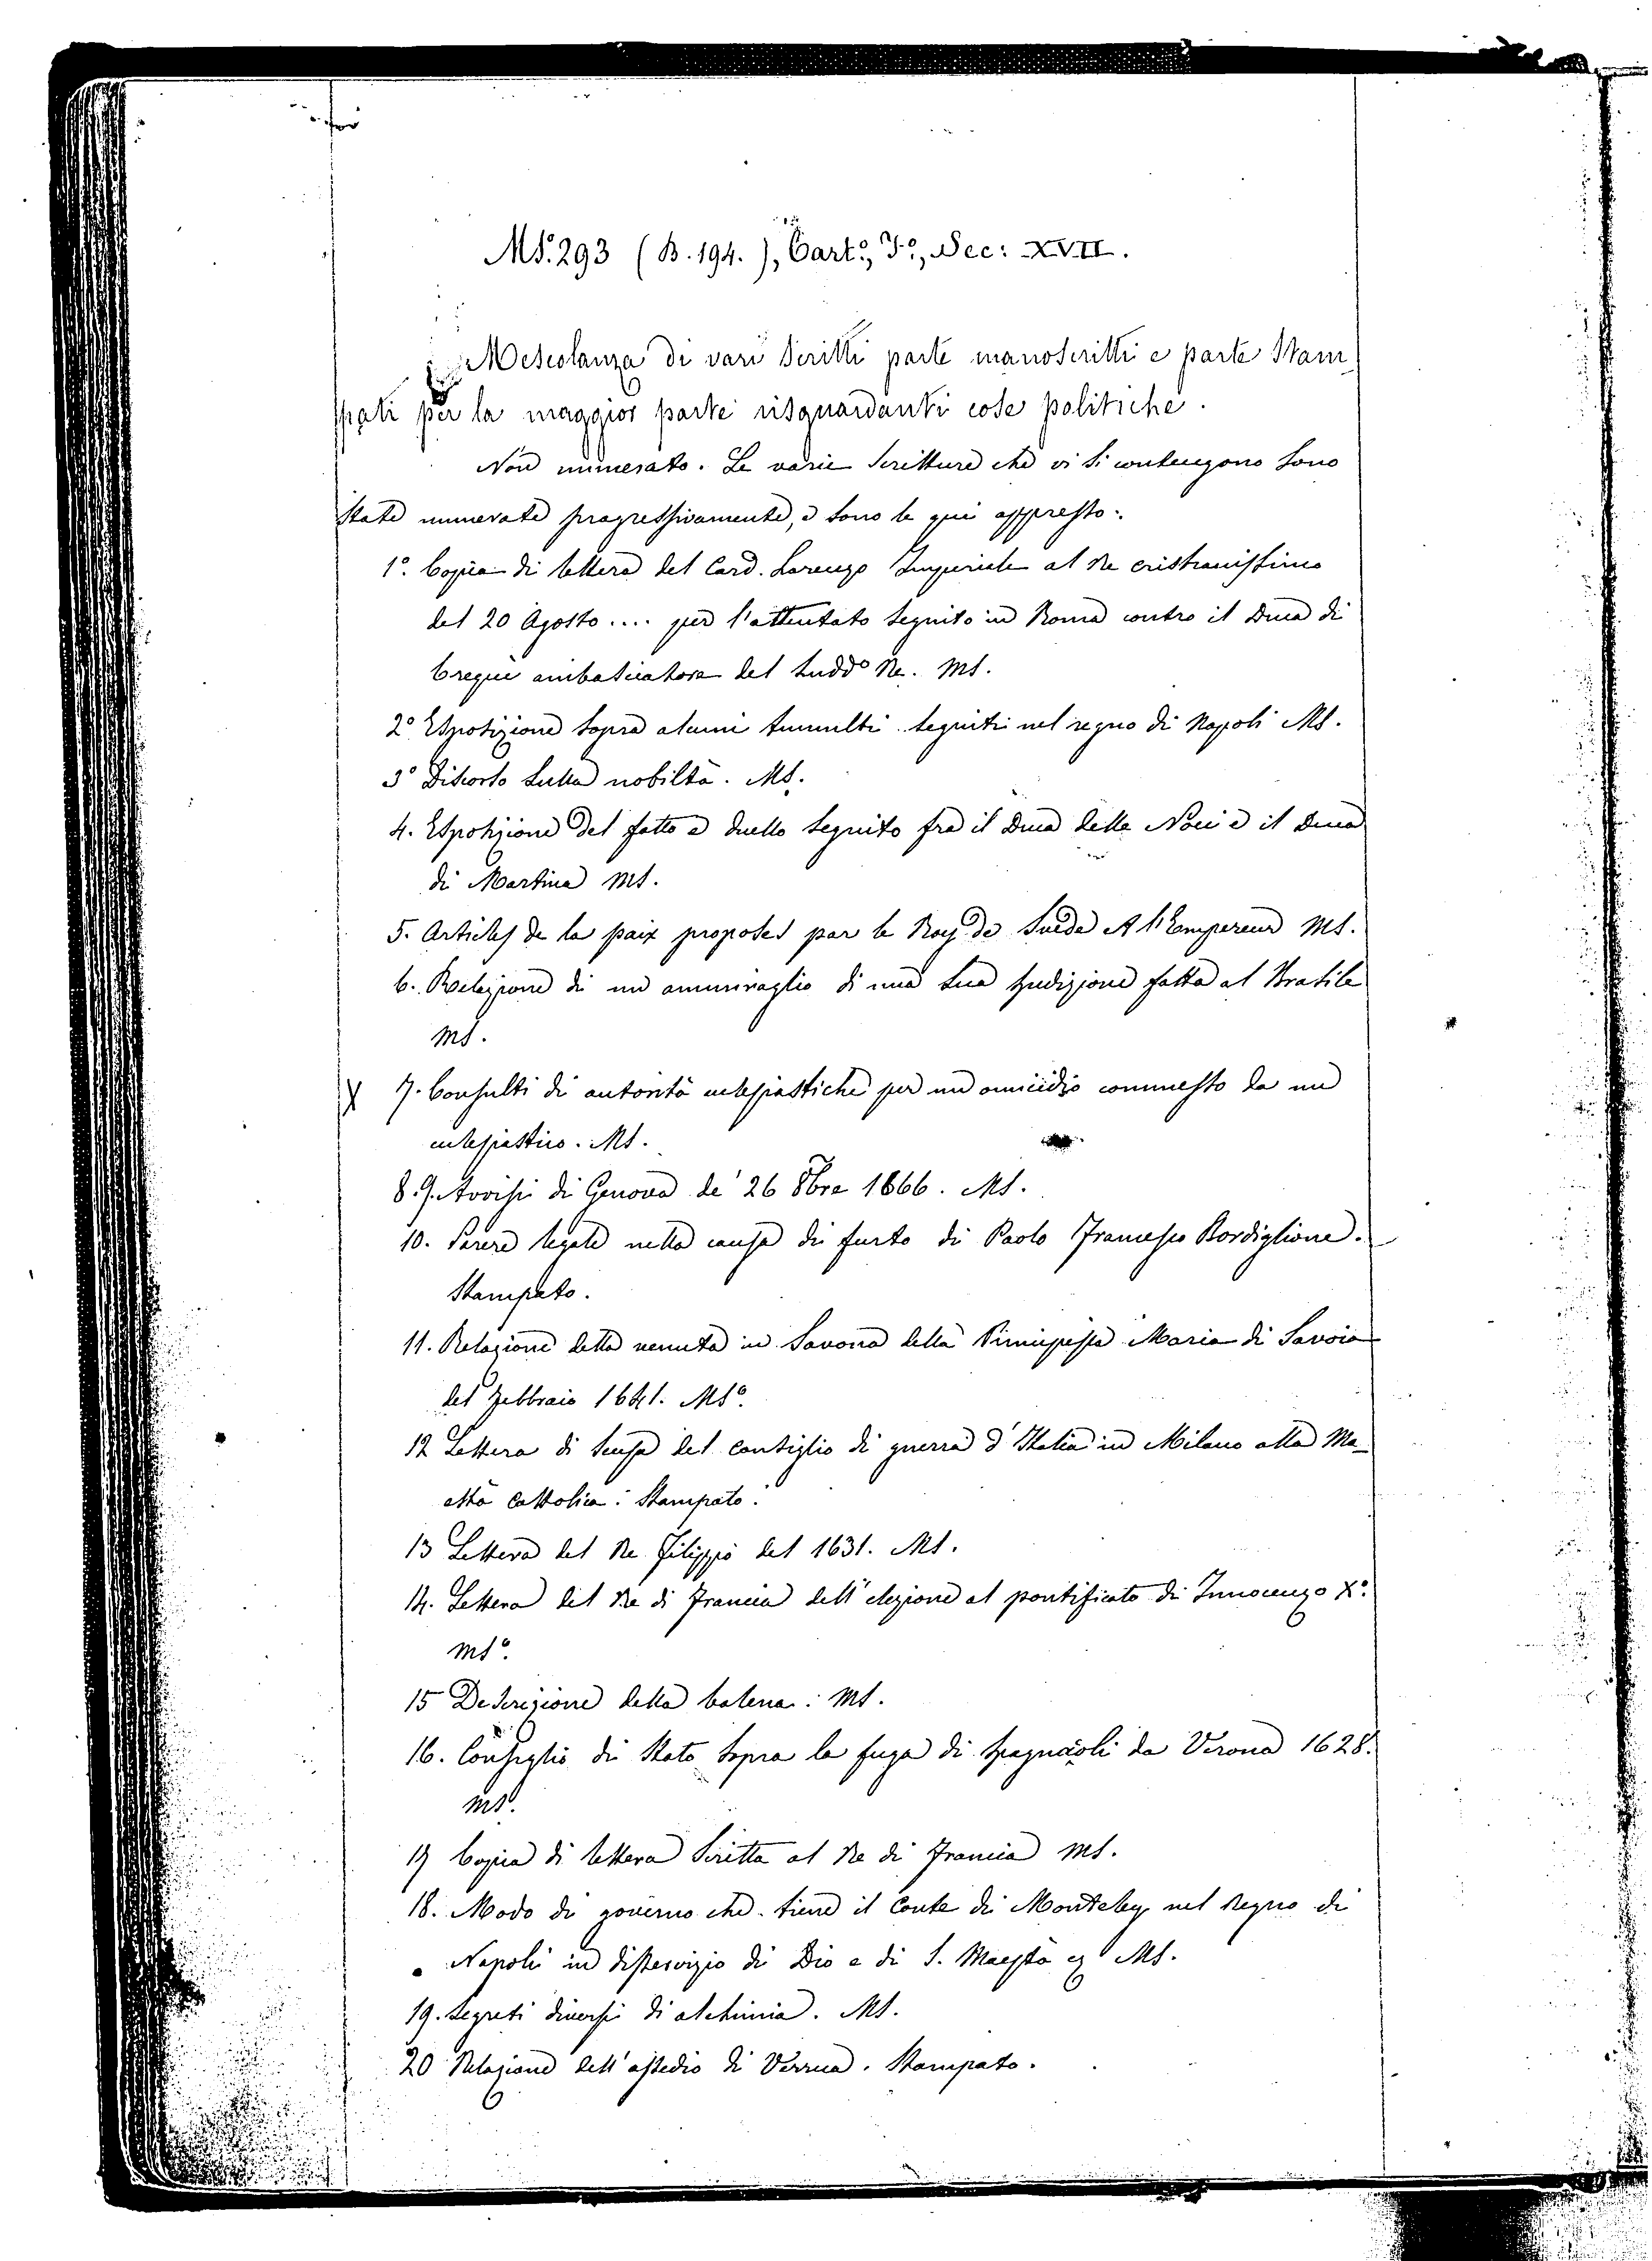 MS. 293 (B. 194.), Cart.º, Fº, Sec: XVII.
Mescolanza di vari scritti parte manoscritti e parte stam-
pati per la maggior parte risguardanti cose politiche.
Non numerato. Le varie scritture che vi si contengono sono
state numerate progressivamente, e sono le qui appresso:
1º. Copia di lettera del Card. Lorenzo Imperiale al Re cristianissimo
del 20 Agosto .... per l'attentato seguito in Roma contro il Duca di
Crequi ambasciatore del sudd.º Re. MS.
2º Esposizione sopra alcuni tumulti seguiti nel regno di Napoli MS.
3º Discorso sulla nobiltà. MS.
4. Esposizione del fatto e duello seguito fra il Duca delle Noci e il Duca
di Martina MS.
5. Articles de la paix proposes par le Roy de Suede A l'Empereur MS.
6. Relazione di un ammiraglio di una sua spedizione fatta al Brasile
MS.
7. Consulti di autorità ecclesiastiche per un omicidio commesso da un
ecclesiastico. MS.
8. 9. Avvisi di Genova de' 26 8bre 1666. MS.
10. Parere legale nella causa di furto di Paolo Francesco Bordiglione.
Stampato.
11. Relazione della venuta in Savona della Principessa Maria di Savoia
del Febbraio MSº.
12 Lettera di scusa del consiglio di guerra d'Italia in Milano alla Ma-
està Cattolica: Stampato.
13 Lettera del Re Filippo del 1631. MS.
14. Lettera del Re di Francia dell'elezione al pontificato di Innocenzo Xº.
MSº.
15 Descrizione della balena: MS.
16. Consiglio di Stato sopra la fuga di Spagnuoli da Verona 1628.
MS.
17 Copia di lettera scritta al Re di Francia MS.
18. Modo di governo che tiene il Conte di Monteley nel Regno di
Napoli in disservizio di Dio e di S. Maestà MS.
19. Segreti diversi di alchimia. MS.
20 Relazione dell'assedio di Verrua. Stampato.